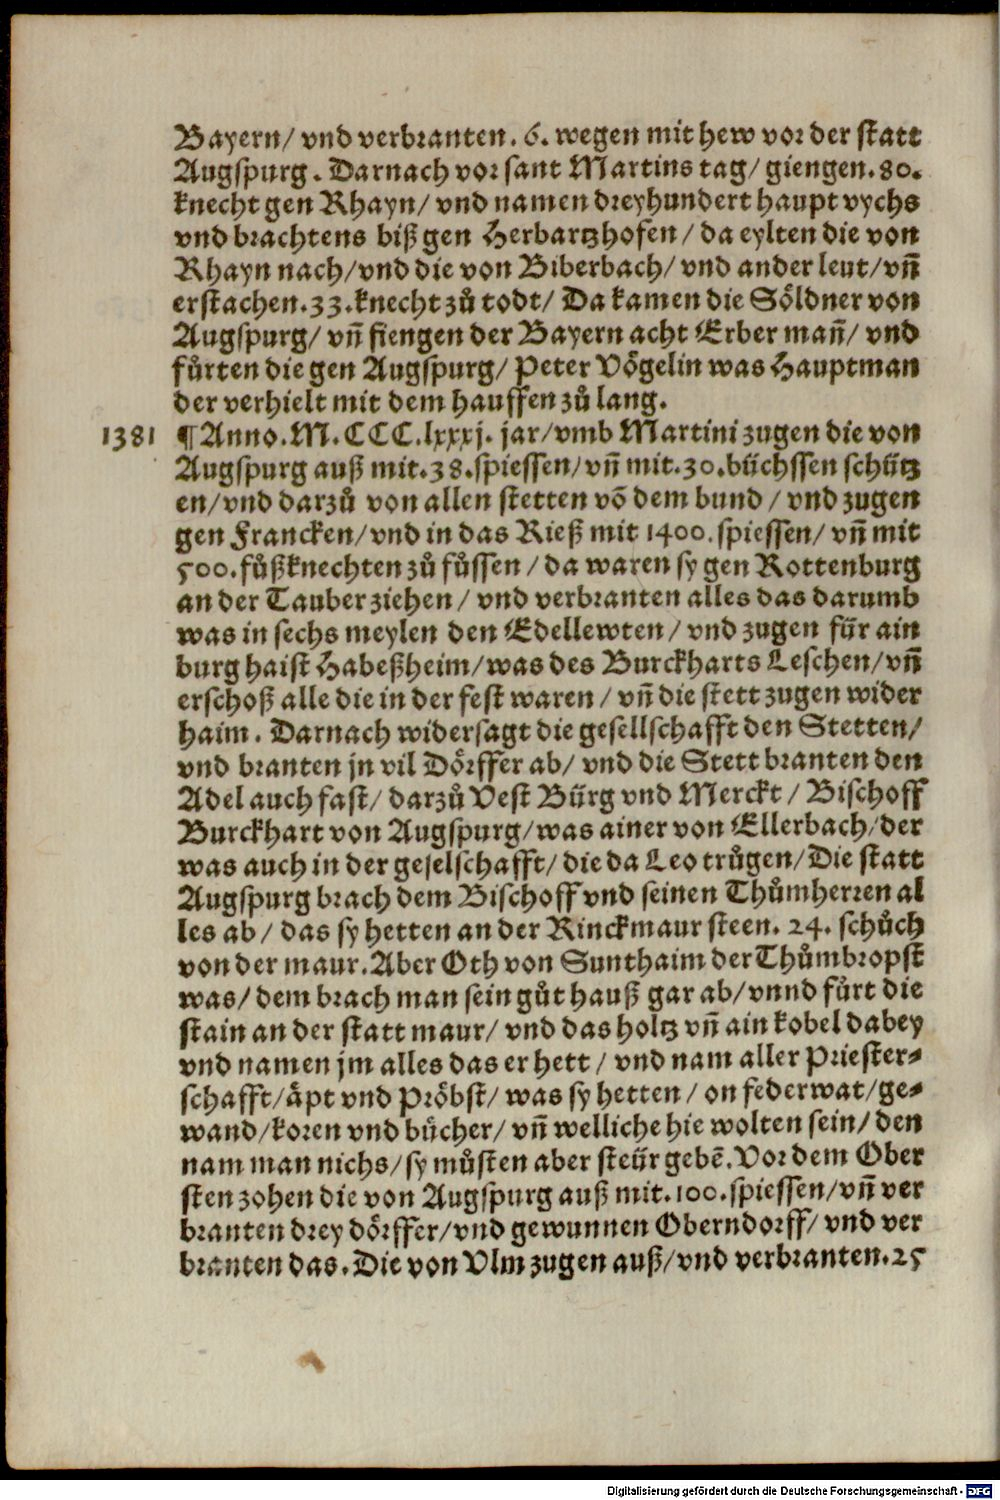 Bayern/ vnd verbranten. 6. wegen mit hew vor der statt
Augspurg. Darnach vor sant Martins tag/ giengen. 80.
knecht gen Rhayn/ vnd namen dreyhundert haupt vychs
vnd brachtens biß gen Herbartzhofen/ da eylten die von
Rhayn nach/ vnd die von Biberbach/ vnd ander leut/ vñ
erstachen. 33. knecht zů todt/ Da kamen die Söldner von
Augspurg/ vñ fiengen der Bayern acht Erber mañ/ vnd
fůrten die gen Augspurg/ Peter Vögelin was Hauptman
der verhielt mit dem hauffen zů lang.
1381 ¶ Anno. M. CCC. lxxxj. jar/ vmb Martini zugen die von
Augspurg auß mit. 38. spiessen/ vñ mit. 30. büchssen schütz
en/ vnd darzů von allen stetten võ dem bund/ vnd zugen
gen Francken/ vnd in das Rieß mit 1400. spiessen/ vñ mit
500. fůßknechten zů fůssen/ da waren sy gen Rottenburg
an der Tauber ziehen/ vnd verbranten alles das darumb
was in sechs meylen den Edellewten/ vnd zugen für ain
burg haist Habeßheim/ was des Burckharts Leschen/ vñ
erschoß alle die in der fest waren/ vñ die stett zugen wider
haim. Darnach widersagt die gesellschafft den Stetten/
vnd branten jn vil Dörffer ab/ vnd die Stett branten den
Adel auch fast/ darzů Vest Bürg vnd Merckt/ Bischoff
Burckhart von Augspurg/ was ainer von Ellerbach/ der
was auch in der geselschafft/ die da Leo trůgen/ Die statt
Augspurg brach dem Bischoff vnd seinen Thůmherren al
les ab/ das sy hetten an der Rinckmaur steen. 24. schůch
von der maur. Aber Oth von Sunthaim der Thůmbropst
was/ dem brach man sein gůt hauß gar ab/ vnnd fůrt die
stain an der statt maur/ vnd das holtz vñ ain kobel dabey
vnd namen jm alles das er hett/ vnd nam aller Priester⸗
schafft/ äpt vnd Pröbst/ was sy hetten/ on federwat/ ge⸗
wand/ koren vnd bücher/ vñ welliche hie wolten sein/ den
nam man nichs/ sy můsten aber steür gebẽ. Vor dem Ober
sten zohen die von Augspurg auß mit. 100. spiessen/ vñ ver
branten drey dörffer/ vnd gewunnen Oberndorff/ vnd ver
branten das. Die von Vlm zugen auß/ vnd verbranten. 25
Digitalisierung gefördert durch die Deutsche Forschungsgemeinschaft - DFG